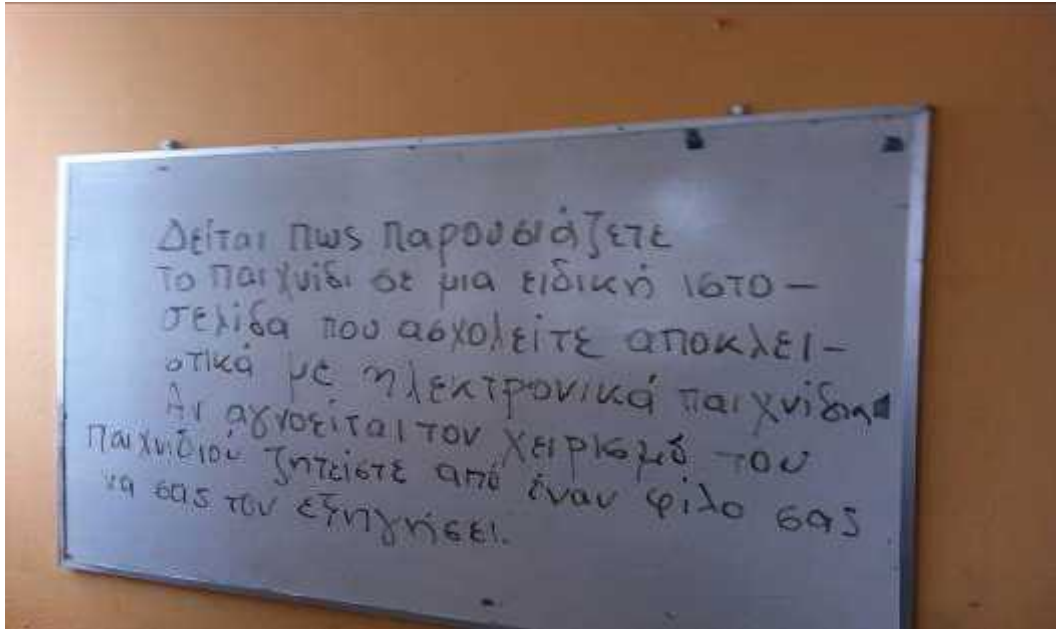 Δείται πως παρουσιάζετε
το παιχνίδι σε μια ειδική ιστο-
σελίδα που ασχολείτε αποκλει-
στικά με ηλεκτρονικά παιχνίδια
Αν αγνοείται τον χειρισμό του
παιχνιδιού ζητείστε από έναν φίλο σας
να σας τον εξηγήσει.